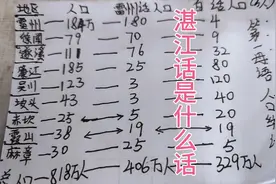 地区 人口 雷州话人口
雷州—184万—180—4
徐闻—79—70—9
遂溪—111—76—32
廉江—185—25
吴川—123—3
坡头—43—3
赤坎—25—5—20
霞山—38—19—19
麻章—30—25—5
总人口—818万人 406万人—329万人
第一母语
湛江话是什么话